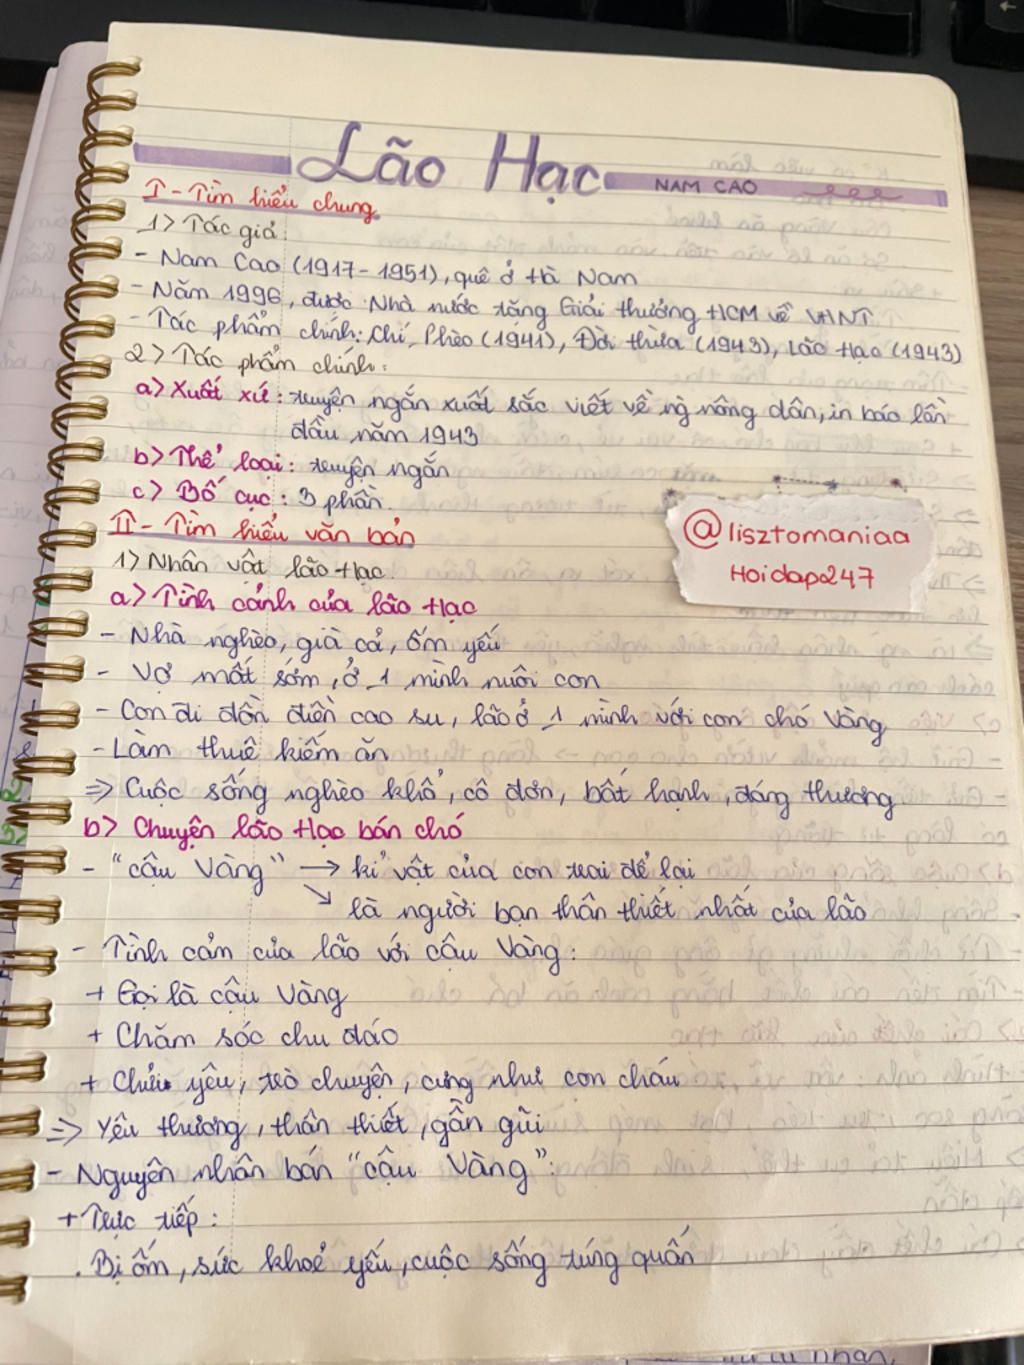 Lão Hạc
NAM CAO
I - Tìm hiểu chung
1> Tác giả:
- Nam Cao (1917 - 1951), quê ở Hà Nam
- Năm 1996, được Nhà nước tặng Giải thưởng HCM về VHNT
- Tác phẩm chính: Chí Phèo (1941), Đời thừa (1943), Lão Hạc (1943)
2> Tác phẩm chính:
a> Xuất xứ: truyện ngắn xuất sắc viết về ng nông dân, in báo lần
đầu năm 1943
b> Thể loại: truyện ngắn
c> Bố cục: 3 phần
II - Tìm hiểu văn bản
@lisztomaniaa
Hoidap247
1> Nhân vật lão Hạc
a> Tình cảnh của lão Hạc
- Nhà nghèo, già cả, ốm yếu
- Vợ mất sớm, ở 1 mình nuôi con
- Con đi đồn điền cao su, lão ở 1 mình với con chó Vàng
- Làm thuê kiếm ăn
=> Cuộc sống nghèo khổ, cô đơn, bất hạnh, đáng thương
b> Chuyện lão Hạc bán chó
- "cậu Vàng" → kỉ vật của con trai để lại
↘ là người bạn thân thiết nhất của lão
- Tình cảm của lão với cậu Vàng:
+ Gọi là cậu Vàng
+ Chăm sóc chu đáo
+ yêu, trò chuyện, cưng như con cháu
=> Yêu thương, thân thiết, gần gũi
- Nguyên nhân bán "cậu Vàng":
+ Trực tiếp:
. Bị ốm, sức khoẻ yếu, cuộc sống túng quấn